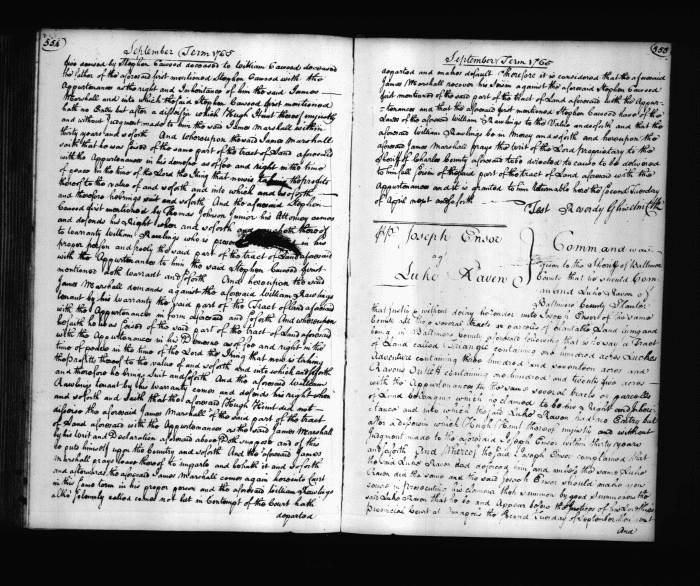 554
September Term 1765
his demised by Stephen Cawood deceased to William Cawood deceased
the Father of the aforesaid first mentioned Stephen Cawood with the
Appurtenances as the right and Inheritance of him the said James
Marshall and into which the said Stephen Cawood first mentioned
hath no Entry but after a disseizin which Hugh Hunt thereof unjustly
and without Judgment made to him the said James Marshall within
thirty years and so forth And whereupon the said James Marshall
saith that he was seized of the same part of the tract of Land aforesaid
with the Appurtenances in his demesne as of fee and right in the time
of peace in the time of the Lord the King that now is taking the profits
thereof to the value of and so forth and into which and so forth
and therefore he brings suit and so forth And the aforesaid Stephen
Cawood first mentioned by Thomas Johnson junior his Attorney comes
and defends his Right when and so forth and voucheth thereof
to warranty William Rawlings who is present in his
proper person and freely the said part of the tract of Land aforesaid
with the Appurtenances to him the said Stephen Cawood first
mentioned doth warrant and so forth And hereupon the said
James Marshall demands against the aforesaid William Rawlings
tenant by his Warranty the said part of the Tract of Land aforesaid
with the Appurtenances in form aforesaid and so forth And whereupon
he saith he was Seized of the said part of the tract of Land aforesaid
with the Appurtenances in his Demesne as of fee and right in the
time of peace in the time of the Lord the King that now is taking
the Profits thereof to the value of and so forth And into which and so forth
and therefore he brings Suit and so forth And the aforesaid William
Rawlings tenant by his Warranty comes and defends his right when
and so forth and saith that the aforesaid Hugh Hunt did not
disseize the aforesaid James Marshall of the said part of the tract
of Land aforesaid with the Appurtenances as the said James Marshall
by his Writ and Declaration aforesaid above doth suppose and of this
he puts himself upon the Country and so forth And the aforesaid James
Marshall prays leave thereof to imparle and he hath it and so forth
and afterwards the aforesaid James Marshall comes again here into Court
in this same term in his proper person and the aforesaid William Rawlings
altho' solemnly called comes not but in Contempt of the Court hath
departed
555
September Term 1765
departed and makes default Therefore it is considered that the aforesaid
James Marshall recover his Seizin against the aforesaid Stephen Cawood
first mentioned of the said part of the tract of Land aforesaid with the Appur-
tenances and that the aforesaid first mentioned Stephen Cawood have of the
Lands of the aforesaid William Rawlings to the Value and so forth and that the
aforesaid William Rawlings be in Mercy and so forth and hereupon the
aforesaid James Marshall prays the writ of the Lord Proprietary to the
Sheriff of Charles County aforesaid to be directed to cause to be delivered
to him full Seizin of the said part of the tract of Land aforesaid with the
Appurtenances and it is granted to him returnable here the second Tuesday
of April next and so forth
Test Reverdy Ghiselin Clk
Joseph Ensor
agt
Luke Raven
Command was
given to the Sheriff of Baltimore
County that he should Com-
mand Luke Raven of
Baltimore County Planter
that justly and without delay he render unto Joseph Ensor of the same
County all those several tracts or parcels of plantable Land lying and
being in Baltimore County aforesaid following that is to say a Tract
of Land called Triangle containing one hundred acres Luckes
Adventure containing three hundred and seventeen acres and
Ravens Outlett containing one hundred and twenty five acres
with the Appurtenances the same several tracts or parcells
of Land being which he claimed to be his Right and Inheri-
tance and into which the said Luke Raven had no Entry but
after a disseizin which Hugh Hunt thereof unjustly and without
Judgment made to the aforesaid Joseph Ensor within thirty years
and so forth And Whereof the said Joseph Ensor complained that
the said Luke Raven had deforced him and unless the same Luke
Raven did the same and the said Joseph Ensor should make him
secure in prosecuting his claim then that he summon by good Summoners the
said Luke Raven that he be and Appear before the Justices of his Lordships
Provincial Court at Annapolis the second Tuesday of September then next
And